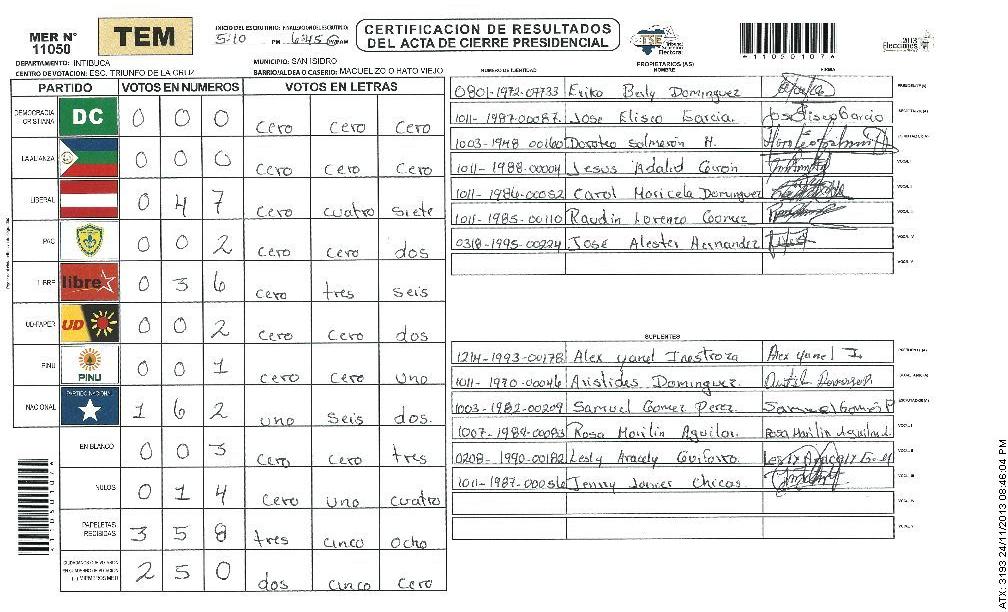 MER N° 11050
TEM
INICIO DEL ESCRUTINIO: FINALIZACION DEL ESCRUTINIO:
5:10 PM 6:45 AM
CERTIFICACION DE RESULTADOS
DEL ACTA DE CIERRE PRESIDENCIAL
TSE
Tribunal Supremo Electoral
*11050107*
2013 Elecciones
DEPARTAMENTO: INTIBUCA
MUNICIPIO: SAN ISIDRO
CENTRO DE VOTACION: ESC. TRIUNFO DE LA CRUZ
BARRIO/ALDEA O CASERIO: MACUELIZO O HATO VIEJO
PARTIDO VOTOS EN NUMEROS VOTOS EN LETRAS
DEMOCRACIA CRISTIANA DC 0 0 0 cero cero cero
LA ALIANZA 0 0 0 cero cero cero
LIBERAL 0 4 7 cero cuatro siete
PAC 0 0 2 cero cero dos
LIBRE libre 0 3 6 cero tres seis
UD-FAPER UD 0 0 2 cero cero dos
PINU PINU 0 0 1 cero cero uno
NACIONAL PARTIDO NACIONAL 1 6 2 uno seis dos
EN BLANCO 0 0 3 cero cero tres
NULOS 0 1 4 cero uno cuatro
PAPELETAS RECIBIDAS 3 5 8 tres cinco ocho
2 5 0 dos cinco cero
PROPIETARIOS (AS)
NUMERO DE IDENTIDAD NOMBRE FIRMA
0801-1972-07733 Erika Berly Dominguez PRESIDENTE (A)
1011-1987-00087 Jose Eliseo Garcia Jose Eliseo Garcia SECRETARIO (A)
1003-1948 00160 Doroteo Salmeron H. ESCRUTADOR (A)
1011-1988-00004 Jesus Adalid VOCAL I
1011-1986-00052 Carol Maricela Dominguez VOCAL II
1011-1985-00110 Raudin Lorenzo Gomez VOCAL III
0318-1995-00224 José Alester Hernandez VOCAL IV
VOCAL V
SUPLENTES
1214-1993-00178 Alex yanel Inestroza Alex yanel I. PRESIDENTE (A)
1011-1970-00046 Aristides Dominguez. SECRETARIO (A)
1003-1982-00209 Samuel Gomez Perez Samuel Gomes P ESCRUTADOR (A)
1007-1989-00093 Rosa Marilin Aguilar. Rosa Marilin Aguilar. VOCAL I
0208-1990-00182 Lesly Aracely VOCAL II
1011-1987-00056 Jenny Chicas VOCAL III
VOCAL IV
VOCAL V
*11050107*
ATX: 3193 24/11/2013 08:46:04 PM